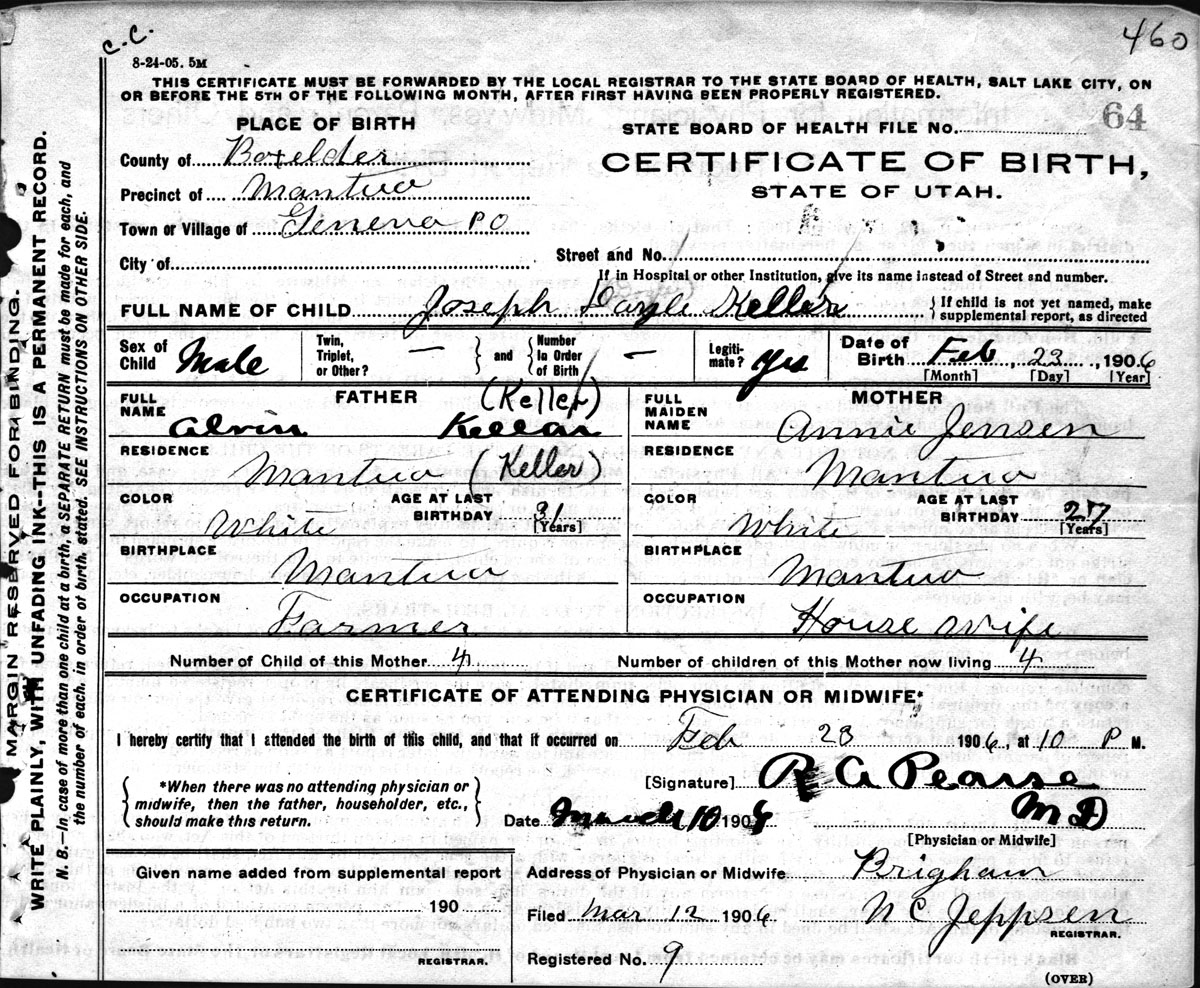 C.C.
460
8-24-05. 5M
THIS CERTIFICATE MUST BE FORWARDED BY THE LOCAL REGISTRAR TO THE STATE BOARD OF HEALTH, SALT LAKE CITY, ON
OR BEFORE THE 5TH OF THE FOLLOWING MONTH, AFTER FIRST HAVING BEEN PROPERLY REGISTERED.
PLACE OF BIRTH
STATE BOARD OF HEALTH FILE NO. 64
County of Boxelder
CERTIFICATE OF BIRTH,
STATE OF UTAH.
Precinct of Mantua
Town or Village of Geneva P O
City of
Street and No.
If in Hospital or other Institution, give its name instead of Street and number.
FULL NAME OF CHILD Joseph Dayle Keller
If child is not yet named, make
supplemental report, as directed
Sex of Child Male
Twin, Triplet, or Other? —
and Number In Order of Birth —
Legitimate? Yes
Date of Birth Feb, 23, 1906
[Month] [Day] [Year]
FATHER
FULL NAME Alvin Kellar (Keller)
RESIDENCE Mantua (Keller)
COLOR White
AGE AT LAST BIRTHDAY 31 [Years]
BIRTHPLACE Mantua
OCCUPATION Farmer
MOTHER
FULL MAIDEN NAME Annie Jensen
RESIDENCE Mantua
COLOR White
AGE AT LAST BIRTHDAY 27 [Years]
BIRTHPLACE Mantua
OCCUPATION House wife
Number of Child of this Mother 4
Number of children of this Mother now living 4
CERTIFICATE OF ATTENDING PHYSICIAN OR MIDWIFE*
I hereby certify that I attended the birth of this child, and that it occurred on Feb 23 1906, at 10 P M.
*When there was no attending physician or
midwife, then the father, householder, etc.,
should make this return.
[Signature] R G Pearse
M D
Date March 10 1906
[Physician or Midwife]
Given name added from supplemental report
190
REGISTRAR.
Address of Physician or Midwife Brigham
Filed Mar 12 1906 N C Jeppsen
REGISTRAR.
Registered No. 9
(OVER)
MARGIN RESERVED FOR BINDING.
WRITE PLAINLY, WITH UNFADING INK--THIS IS A PERMANENT RECORD.
N. B.—In case of more than one child at a birth, a SEPARATE RETURN must be made for each, and
the number of each, in order of birth, stated. SEE INSTRUCTIONS ON OTHER SIDE.